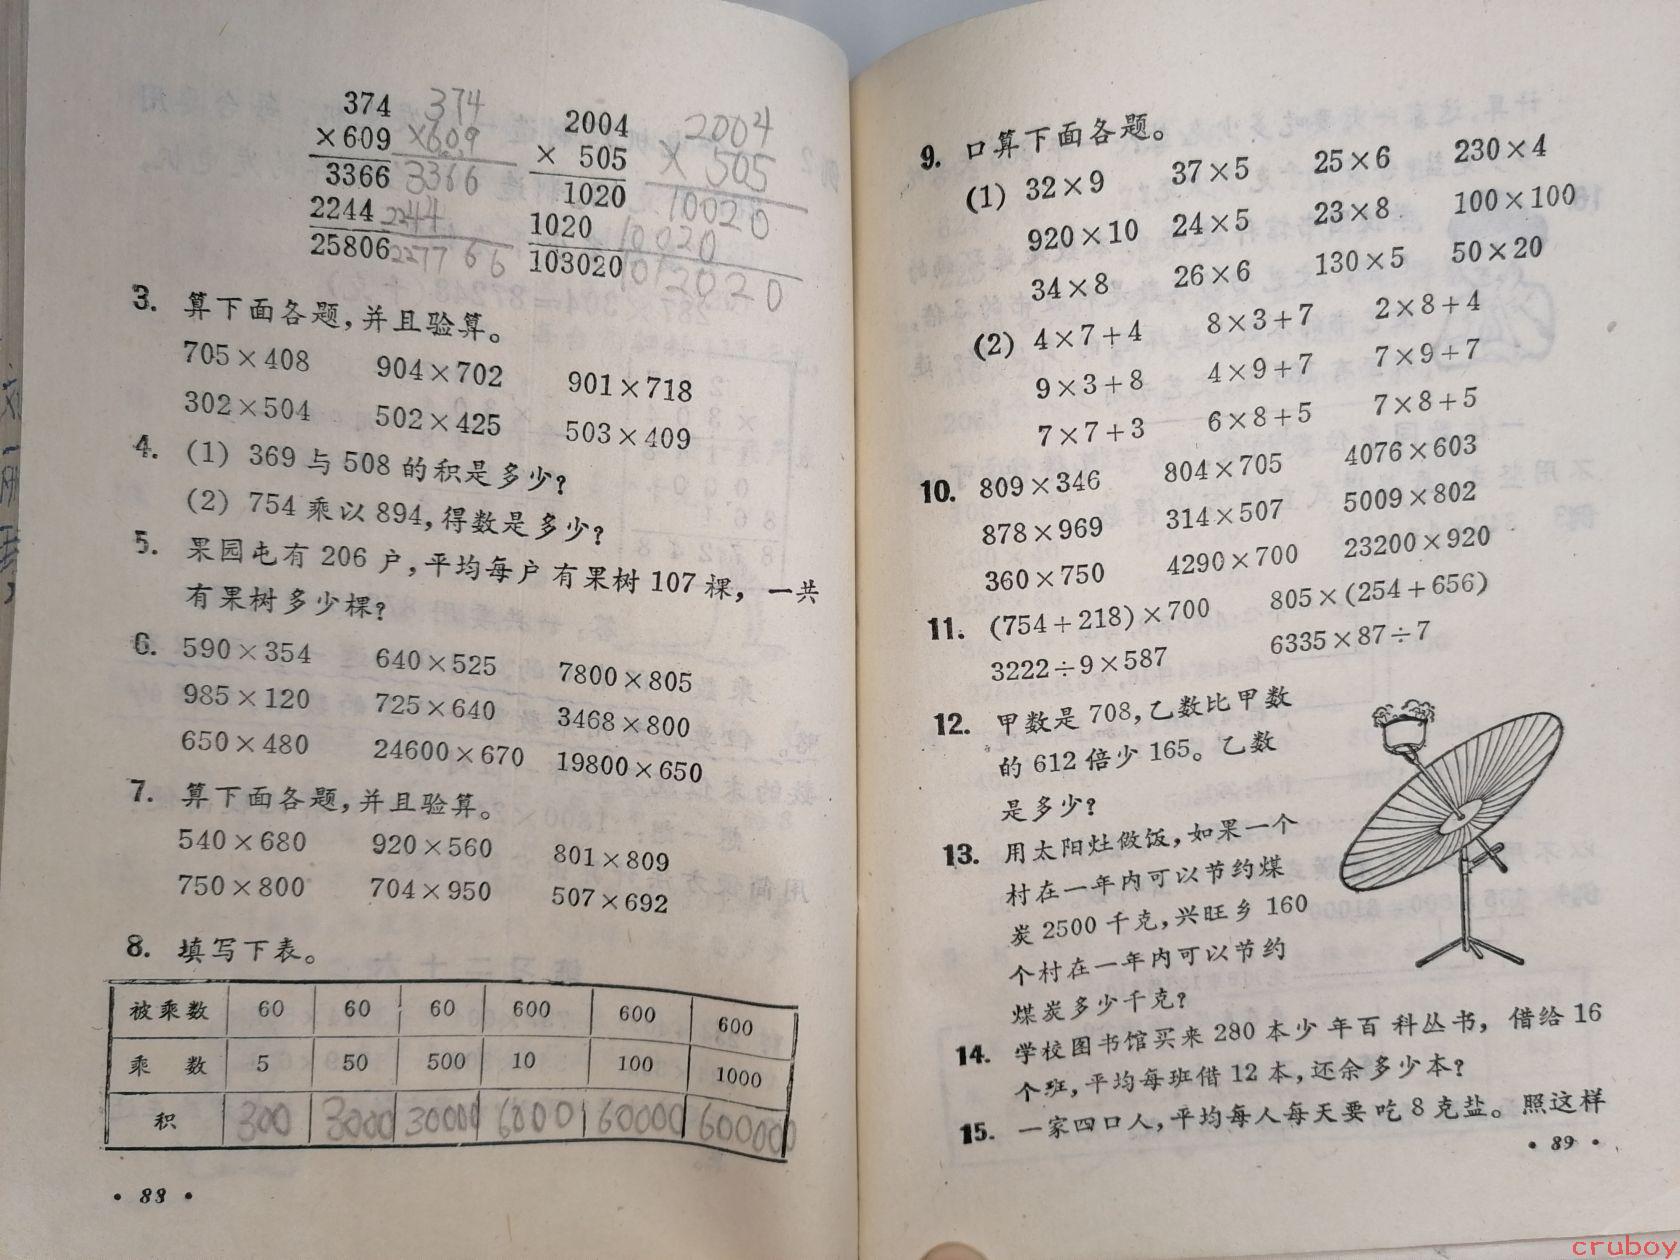 374 374 2004 2004
×609 ×609 × 505 × 505
3366 3366 1020 10020
2244 2244 1020 10020
25806 227766 103020 1012020
3. 算下面各题,并且验算。
705×408 904×702 901×718
302×504 502×425 503×409
4. (1) 369与508的积是多少?
(2) 754乘以894,得数是多少?
5. 果园屯有206户,平均每户有果树107棵,一共
有果树多少棵?
6. 590×354 640×525 7800×805
985×120 725×640 3468×800
650×480 24600×670 19800×650
7. 算下面各题,并且验算。
540×680 920×560 801×809
750×800 704×950 507×692
8. 填写下表。
被乘数 60 60 60 600 600 600
乘 数 5 50 500 10 100 1000
积 300 3000 30000 6000 60000 600000
• 88 •
9. 口算下面各题。
(1) 32×9 37×5 25×6 230×4
920×10 24×5 23×8 100×100
34×8 26×6 130×5 50×20
(2) 4×7+4 8×3+7 2×8+4
9×3+8 4×9+7 7×9+7
7×7+3 6×8+5 7×8+5
10. 809×346 804×705 4076×603
878×969 314×507 5009×802
360×750 4290×700 23200×920
11. (754+218)×700 805×(254+656)
3222÷9×587 6335×87÷7
12. 甲数是708,乙数比甲数
的612倍少165。乙数
是多少?
13. 用太阳灶做饭,如果一个
村在一年内可以节约煤
炭2500千克,兴旺乡160
个村在一年内可以节约
煤炭多少千克?
14. 学校图书馆买来280本少年百科丛书,借给16
个班,平均每班借12本,还余多少本?
15. 一家四口人,平均每人每天要吃8克盐。照这样
• 89 •
cruboy